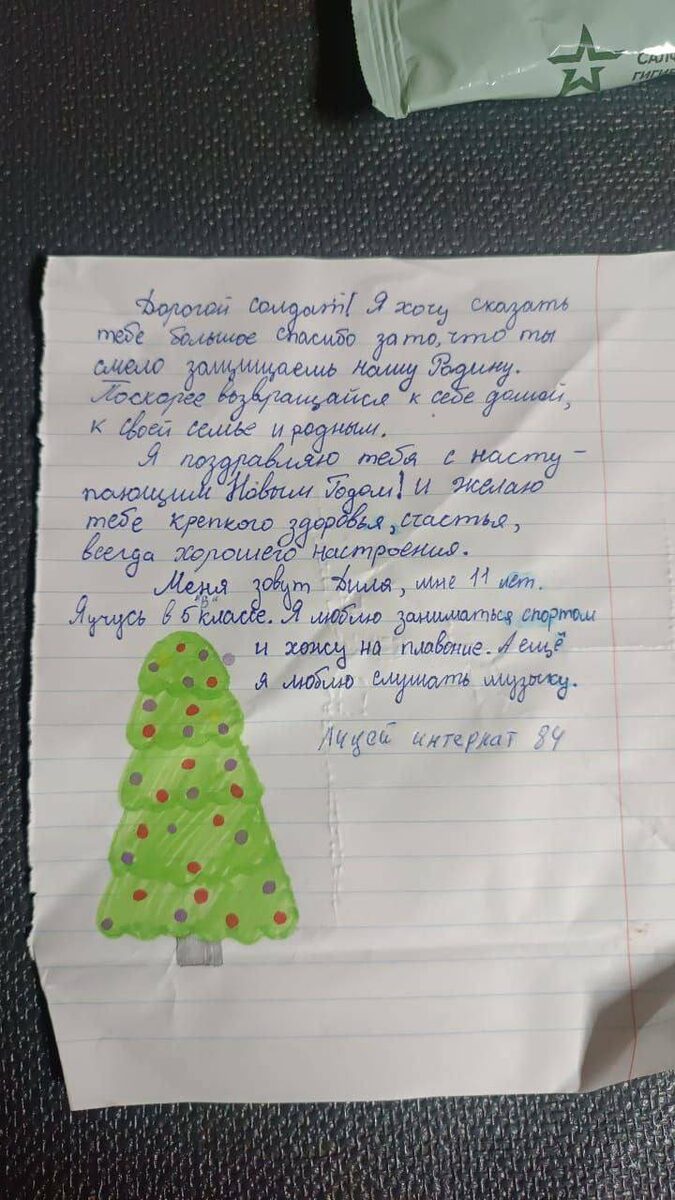 САЛФ
ГИГИЕ
Дорогой солдат! Я хочу сказать
тебе большое спасибо за то, что ты
смело защищаешь нашу Родину.
Поскорее возвращайся к себе домой,
к своей семье и родным.
Я поздравляю тебя с насту-
пающим Новым Годом! И желаю
тебе крепкого здоровья, счастья,
всегда хорошего настроения.
Меня зовут Диля, мне 11 лет.
Я учусь в 5 "В" классе. Я люблю заниматься спортом
и хожу на плавоние. А ещё
я люблю слушать музыку.
Лицей интернат 84